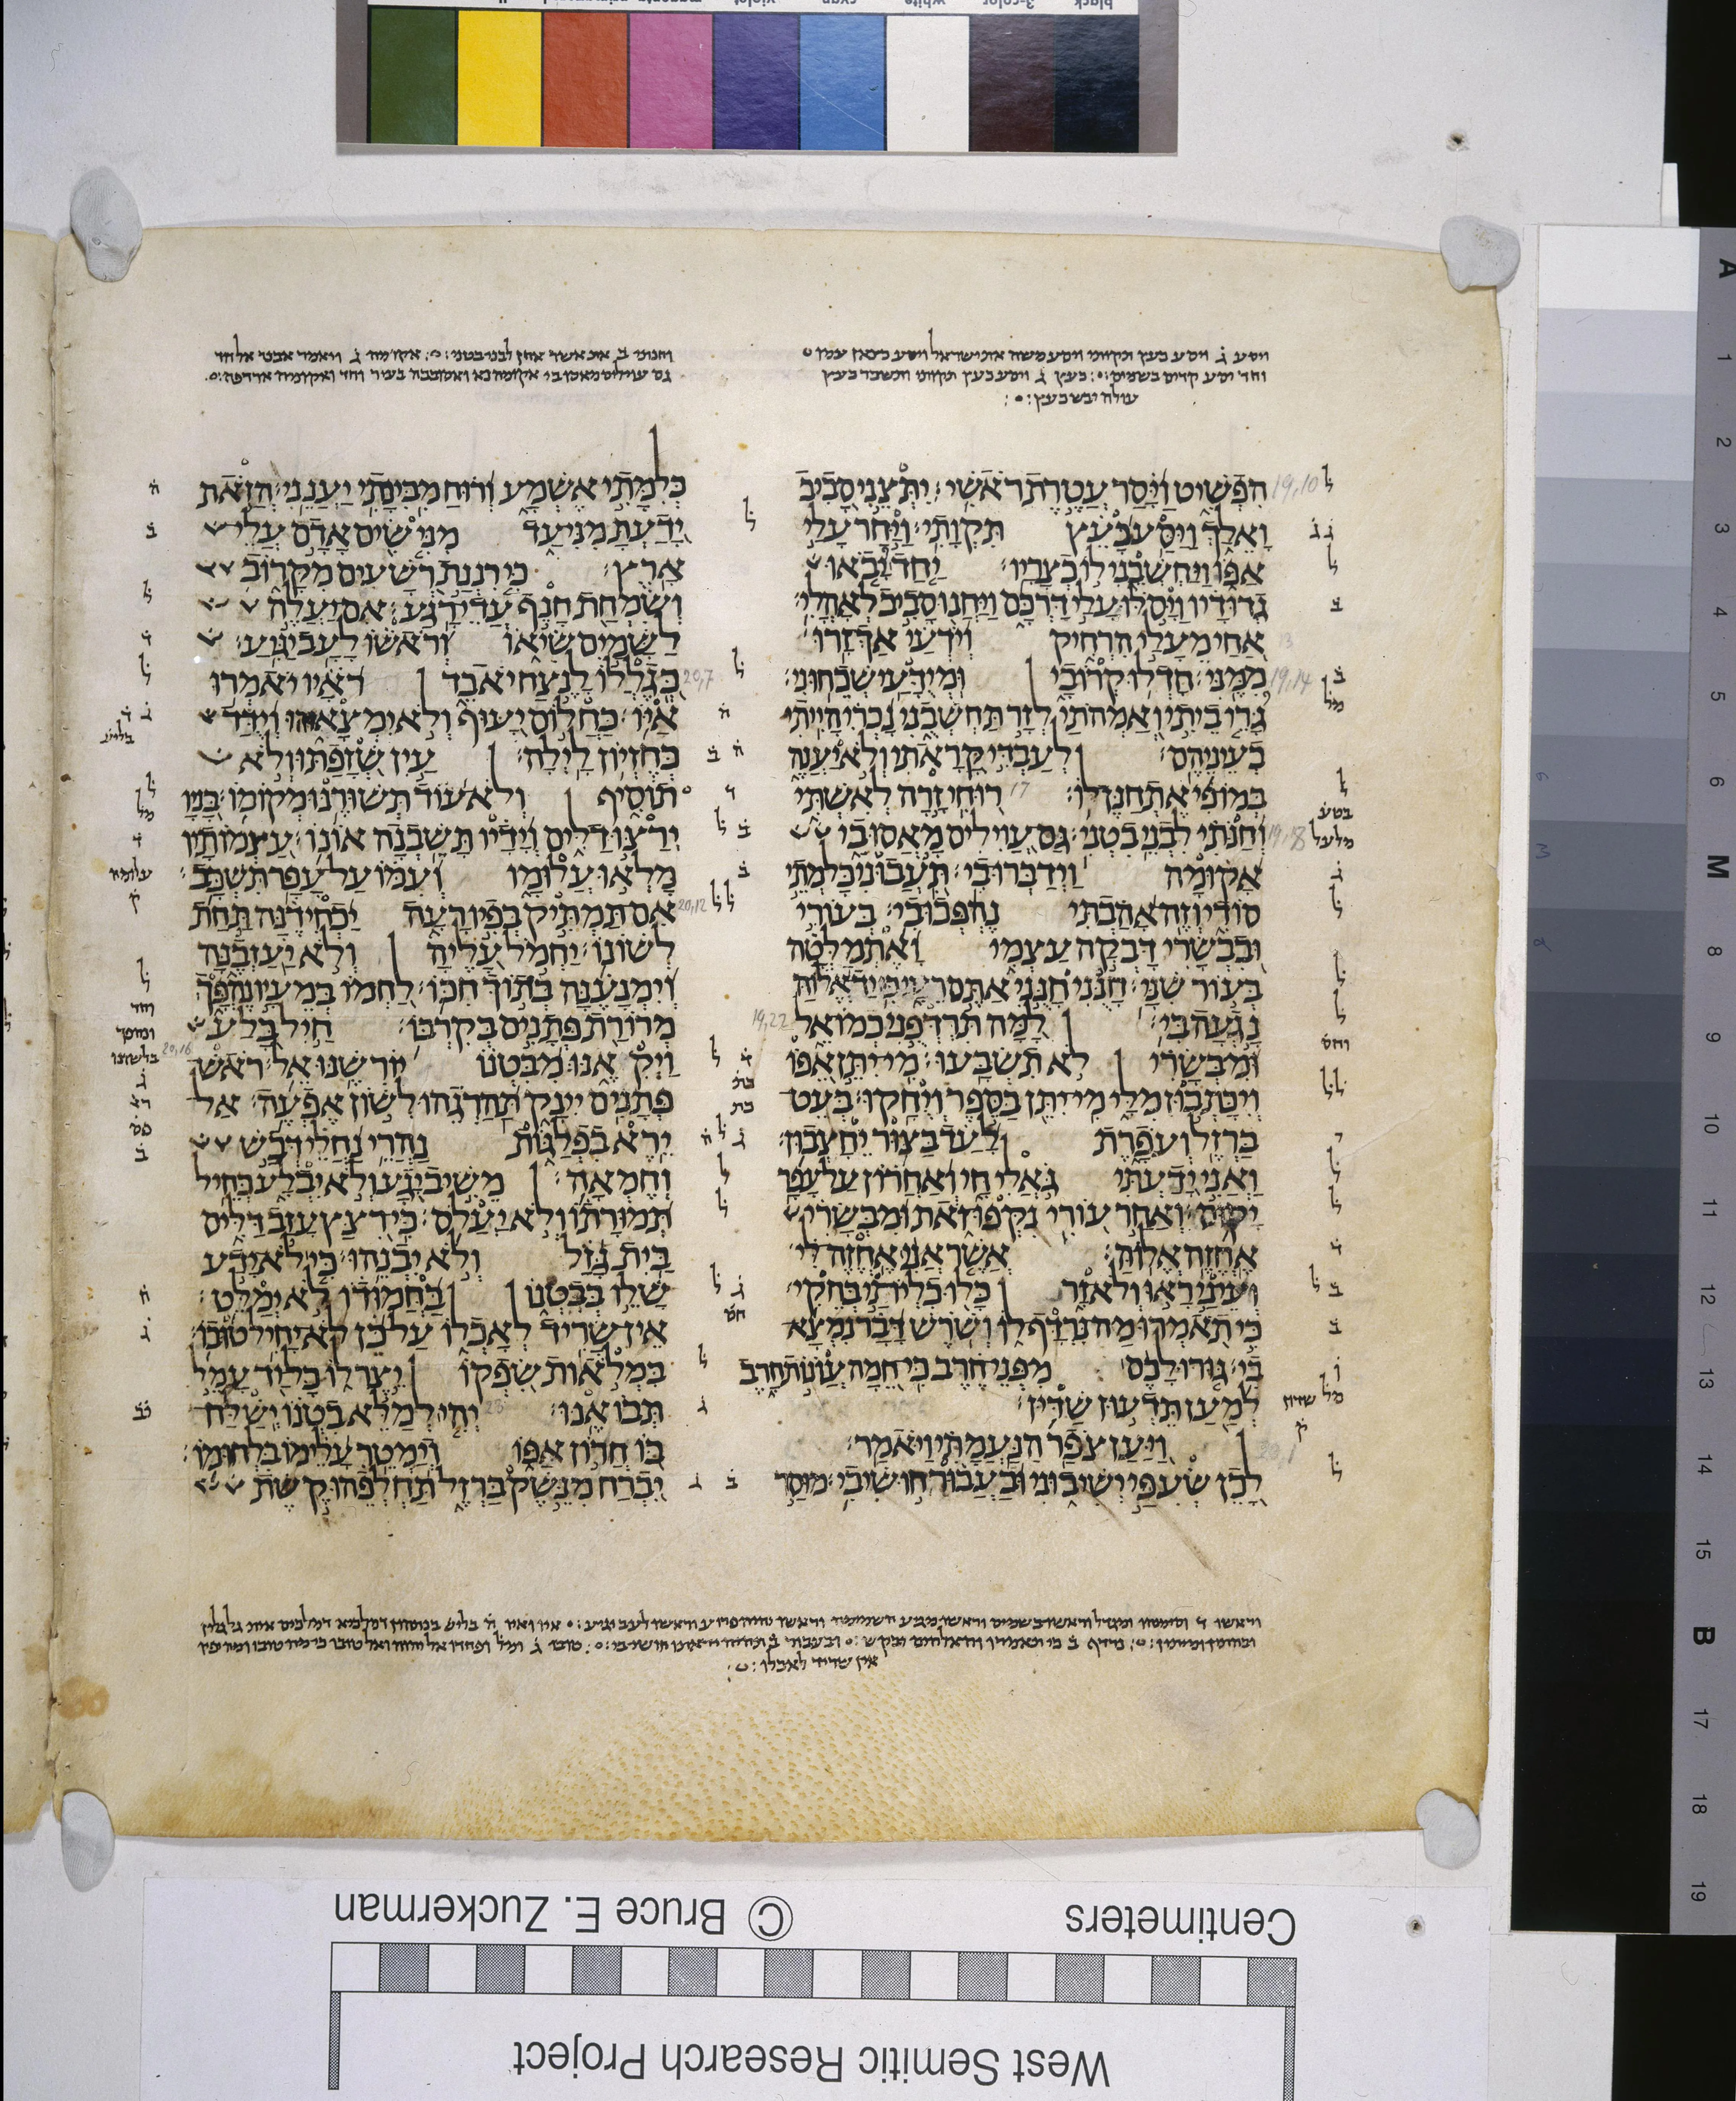 ויסע ג ויסע כעץ תקותי ויסע משה את ישראל ויסע כצאן עמו
וחד יסע קדים בשמים כעץ ג ויסע כעץ תקותי ותשבר כעץ
עולה יבש כעץ
הִפְשִׁיט וַיָּסַר עֲטֶרֶת רֹאשִׁי׃ יִתְּצֵנִי סָבִיב
וָאֵלַךְ וַיַּסַּע כָּעֵץ תִּקְוָתִי׃ וַיַּחַר עָלַי
אַפּוֹ וַיַּחְשְׁבֵנִי לוֹ כְצָרָיו׃ יַחַד יָבֹאוּ
גְדוּדָיו וַיָּסֹלּוּ עָלַי דַּרְכָּם וַיַּחֲנוּ סָבִיב לְאָהֳלִי׃
אַחַי מֵעָלַי הִרְחִיק וְיֹדְעַי אַךְ זָרוּ
מִמֶּנִּי׃ חָדְלוּ קְרוֹבָי וּמְיֻדָּעַי שְׁכֵחוּנִי׃
גָּרֵי בֵיתִי וְאַמְהֹתַי לְזָר תַּחְשְׁבֻנִי נָכְרִי הָיִיתִי
בְעֵינֵיהֶם׃ לְעַבְדִּי קָרָאתִי וְלֹא יַעֲנֶה
בְּמוֹ פִי אֶתְחַנֶּן לוֹ׃ רוּחִי זָרָה לְאִשְׁתִּי
וְחַנֹּתִי לִבְנֵי בִטְנִי׃ גַּם עֲוִילִים מָאֲסוּ בִי
אָקוּמָה וַיְדַבְּרוּ בִי׃ תִּעֲבוּנִי כָּל מְתֵי
סוֹדִי וְזֶה אָהַבְתִּי נֶהְפְּכוּ בִי׃ בְּעוֹרִי
וּבִבְשָׂרִי דָּבְקָה עַצְמִי וָאֶתְמַלְּטָה
בְּעוֹר שִׁנָּי׃ חָנֻּנִי חָנֻּנִי אַתֶּם רֵעָי כִּי יַד אֱלוֹהַּ
נָגְעָה בִּי׃ לָמָּה תִּרְדְּפֻנִי כְמוֹ אֵל
וּמִבְּשָׂרִי לֹא תִשְׂבָּעוּ׃ מִי יִתֵּן אֵפוֹ
וְיִכָּתְבוּן מִלָּי מִי יִתֵּן בַּסֵּפֶר וְיֻחָקוּ׃ בְּעֵט
בַּרְזֶל וְעֹפָרֶת לָעַד בַּצּוּר יֵחָצְבוּן׃
וַאֲנִי יָדַעְתִּי גֹּאֲלִי חָי וְאַחֲרוֹן עַל עָפָר
יָקוּם׃ וְאַחַר עוֹרִי נִקְּפוּ זֹאת וּמִבְּשָׂרִי
אֶחֱזֶה אֱלוֹהַּ׃ אֲשֶׁר אֲנִי אֶחֱזֶה לִּי
וְעֵינַי רָאוּ וְלֹא זָר כָּלוּ כִלְיֹתַי בְּחֵקִי׃
כִּי תֹאמְרוּ מַה נִּרְדָּף לוֹ וְשֹׁרֶשׁ דָּבָר נִמְצָא
בִי׃ גּוּרוּ לָכֶם מִפְּנֵי חֶרֶב כִּי חֵמָה עֲוֺנוֹת חָרֶב
לְמַעַן תֵּדְעוּן שַׁדִּין׃
וַיַּעַן צֹפַר הַנַּעֲמָתִי וַיֹּאמַר׃
לָכֵן שְׂעִפַּי יְשִׁיבוּנִי וּבַעֲבוּר חוּשִׁי בִי׃ מוּסַר
וחנותי ב את אשר אחן לבני בטני אקומה ג ויאמר אבי אל חד
גם עוילים מאסו בי אקומה נא ואסובבה בעיר וחד ואקומה ארדפה
כְּלִמָּתִי אֶשְׁמָע וְרוּחַ מִבִּינָתִי יַעֲנֵנִי׃ הֲזֹאת
יָדַעְתָּ מִנִּי עַד מִנִּי שִׂים אָדָם עֲלֵי
אָרֶץ׃ כִּי רִנְנַת רְשָׁעִים מִקָּרוֹב
וְשִׂמְחַת חָנֵף עֲדֵי רָגַע׃ אִם יַעֲלֶה
לַשָּׁמַיִם שִׂיאוֹ וְרֹאשׁוֹ לָעָב יַגִּיעַ׃
כְּגֶלֲלוֹ לָנֶצַח יֹאבֵד רֹאָיו יֹאמְרוּ
אַיּוֹ׃ כַּחֲלוֹם יָעוּף וְלֹא יִמְצָאוּהוּ וְיֻדַּד
כְּחֶזְיוֹן לָיְלָה׃ עַיִן שְׁזָפַתּוּ וְלֹא
תוֹסִיף וְלֹא עוֹד תְּשׁוּרֶנּוּ מְקוֹמוֹ׃ בָּנָיו
יְרַצּוּ דַלִּים וְיָדָיו תָּשֵׁבְנָה אוֹנוֹ׃ עַצְמוֹתָיו
מָלְאוּ עֲלוּמָו וְעִמּוֹ עַל עָפָר תִּשְׁכָּב׃
אִם תַּמְתִּיק בְּפִיו רָעָה יַכְחִידֶנָּה תַּחַת
לְשׁוֹנוֹ׃ יַחְמֹל עָלֶיהָ וְלֹא יַעַזְבֶנָּה
וְיִמְנָעֶנָּה בְּתוֹךְ חִכּוֹ׃ לַחְמוֹ בְּמֵעָיו נֶהְפָּךְ
מְרוֹרַת פְּתָנִים בְּקִרְבּוֹ׃ חַיִל בָּלַע
וַיְקִאֶנּוּ מִבִּטְנוֹ יוֹרִשֶׁנּוּ אֵל׃ רֹאשׁ
פְּתָנִים יִינָק תַּהַרְגֵהוּ לְשׁוֹן אֶפְעֶה׃ אַל
יֵרֶא בִפְלַגּוֹת נַהֲרֵי נַחֲלֵי דְּבַשׁ
וְחֶמְאָה׃ מֵשִׁיב יָגָע וְלֹא יִבְלָע כְּחֵיל
תְּמוּרָתוֹ וְלֹא יַעֲלֹס׃ כִּי רִצַּץ עָזַב דַּלִּים
בַּיִת גָּזַל וְלֹא יִבְנֵהוּ׃ כִּי לֹא יָדַע
שָׁלֵו בְּבִטְנוֹ בַּחֲמוּדוֹ לֹא יְמַלֵּט׃
אֵין שָׂרִיד לְאָכְלוֹ עַל כֵּן לֹא יָחִיל טוּבוֹ׃
בִּמְלֹאות שִׂפְקוֹ יֵצֶר לוֹ כָּל יַד עָמֵל
תְּבוֹאֶנּוּ׃ יְהִי לְמַלֵּא בִטְנוֹ יְשַׁלַּח
בּוֹ חֲרוֹן אַפּוֹ וְיַמְטֵר עָלֵימוֹ בִּלְחוּמוֹ׃
יִבְרַח מִנֵּשֶׁק בַּרְזֶל תַּחְלְפֵהוּ קֶשֶׁת
אין שריד לאכלו
19,10
19,14
17
19,18
19,22
20,7
20,12
20,16
Centimeters © Bruce E. Zuckerman
West Semitic Research Project
A 1 2 3 4 5 6 M 8 9 10 11 12 13 14 15 B 17 18 19